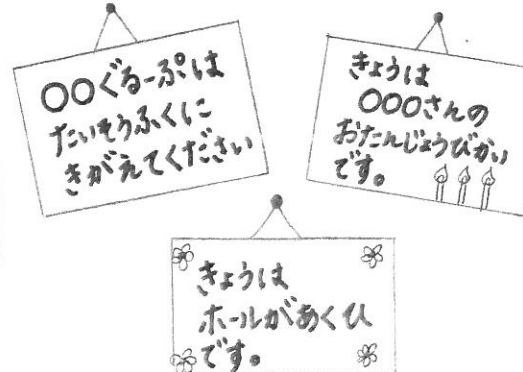 〇〇ぐるーぷは
たいそうふくに
きがえてください
きょうは
〇〇〇さんの
おたんじょうびかい
です。
きょうは
ホールがあくひ
です。